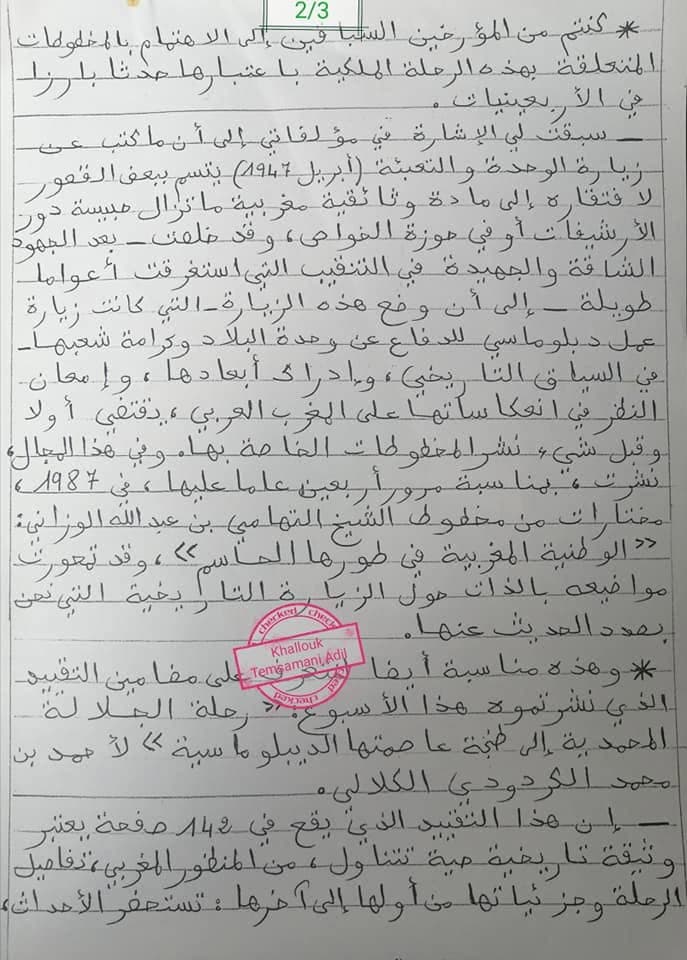 2/3
* كنتم من المؤرخين السباقين إلى الاهتمام بالمخطوطات
المتعلقة بهذه الرحلة الملكية باعتبارها حدثا بارزا
في الأربعينيات.
– سبقت لي الإشارة في مؤلفاتي إلى أن ما كتب عن
زيارة الوحدة والتعبئة (أبريل 1947) يتسم ببعض القصور
لافتقاره إلى مادة وثائقية مغربية ماتزال حبيسة دور
الأرشيفات أو في حوزة الخواص، وقد خلصت – بعد الجهود
الشاقة والجهيدة في التنقيب التي استغرقت أعواما
طويلة – إلى أن وضع هذه الزيارة – التي كانت زيارة
عمل دبلوماسي للدفاع عن وحدة البلاد وكرامة شعبها –
في السياق التاريخي، وإدراك أبعادها، وإمعان
النظر في انعكاساتها على المغرب العربي، يقتضي أولا
وقبل شيء، نشر المخطوطات الخاصة بها. وفي هذا المجال،
نشرت، بمناسبة مرور أربعين عاما عليها، في 1987،
مختارات من مخطوط الشيخ التهامي بن عبد الله الوزاني:
«الوطنية المغربية في طورها الحاسم»، وقد تمحورت
مواضيعه بالذات حول الزيارة التاريخية التي نحن
بصدد الحديث عنها.
checked
Khallouk
Temsamani Adil
checked
* وهذه مناسبة أيضا على مضامين التقييد
الذي نشرتموه هذا الأسبوع: «رحلة الجلالة
المحمدية إلى طنجة عاصمتها الديبلوماسية» لأحمد بن
محمد الكردودي الكلالي.
– إن هذا التقييد الذي يقع في 142 صفحة يعتبر
وثيقة تاريخية حية تتناول، من المنظور المغربي، تفاصيل
الرحلة وجزئياتها من أولها إلى آخرها: تستحضر الأحداث،